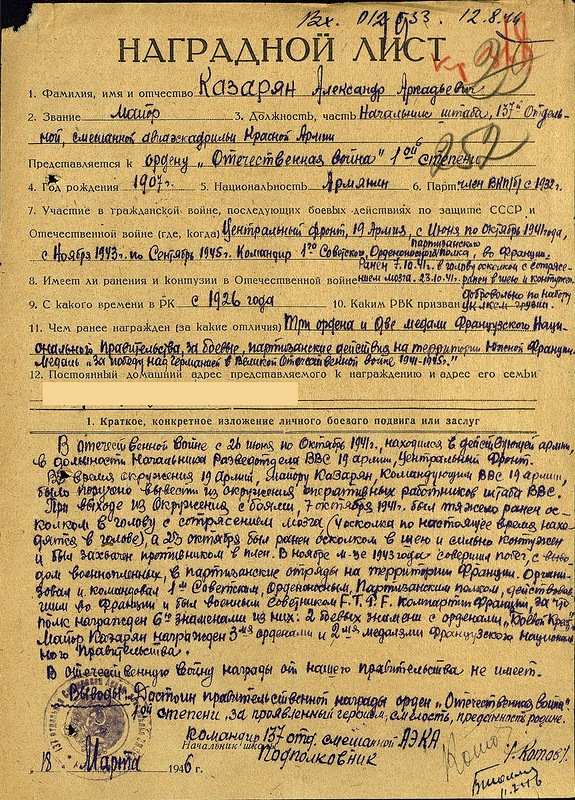 Вх. 12.8.46
НАГРАДНОЙ ЛИСТ
252
1. Фамилия, имя и отчество Казарян Александр Аркадьевич
2. Звание Майор 3. Должность, часть Начальник штаба, 137й Отдель-
ной, смешанной авиаэскадрильи Красной Армии
Представляется к ордену „Отечественная война" 1ой степени
4. Год рождения 1907г. 5. Национальность Армянин 6. Парт член ВКП(б) с 1932г.
7. Участие в гражданской войне, последующих боевых действиях по защите СССР и
Отечественной войне (где, когда) Центральный фронт, 19 Армия, с Июня по Октябрь 1941 года,
с Ноября 1943г. по Сентябрь 1945г. Командир 1го Советского, Орденоносного партизанского полка, во Франции.
8. Имеет ли ранения и контузии в Отечественной войне Ранен 7.10.41г. в голову осколком с сотрясе-
нием мозга. 23.10.41г. ранен в шею и контужен.
9. С какого времени в РК с 1926 года 10. Каким РВК призван добровольно по набору
11. Чем ранее награжден (за какие отличия) Три ордена и Две медали Французского Наци-
онального Правительства, за боевые, партизанские действия на территории Южной Франции.
Медаль „За победу над Германией в Великой Отечественной войне 1941-1945г."
12. Постоянный домашний адрес представляемого к награждению и адрес его семьи
1. Краткое, конкретное изложение личного боевого подвига или заслуг
В Отечественной войне с 26 июня по Октябрь 1941г., находился в действующей армии,
в должности Начальника Разведотдела ВВС 19 армии, Центральный Фронт.
Во время окружения 19 армии, Майору Казарян, Командующим ВВС 19 армии,
было поручено вывести из окружения оперативных работников штаба ВВС.
При выходе из окружения с боями, 7 октября 1941г. был тяжело ранен ос-
колком в голову с сотрясением мозга (4 осколка по настоящее время нахо-
дятся в голове), а 23 октября был ранен осколком в шею и сильно контужен
и был захвачен противником в плен. В ноябре м-це 1943 года совершил побег, с
дом военнопленных, в партизанские отряды на территории Франции. Органи-
зовал и командовал 1м Советским, Орденоносным, Партизанским полком, действовав-
шим во Франции и был военным советником F.T.P.F. компартии Франции, за что
полк награжден 6ю знаменами из них: 2 боевых знамени с орденами „Боевой Крест".
Майор Казарян награжден 3мя орденами и 2мя медалями Французского Националь-
ного Правительства.
В Отечественную войну награды от нашего правительства не имеет.
Выводы: Достоин правительственной награды орден „Отечественная война"
1ой степени, за проявленный героизм, смелость, преданность родине.
Командир 137 отд. смешанной АЭКА
Начальник школы
Подполковник /Котов/.
18 Марта 1946 г.